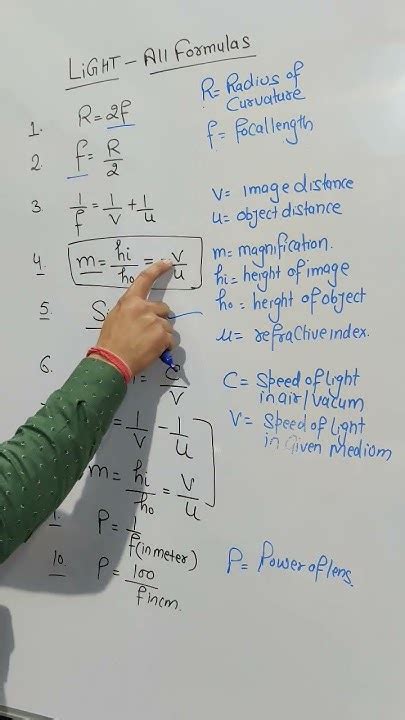 LiGHT – All Formulas
1. R = 2f
2. f = R/2
3. 1/f = 1/v + 1/u
4. m = hi/ho = - v/u
5.
6. = C/v
= 1/v - 1/u
m = hi/ho = v/u
P = 1/f(in meter)
10. P = 100/f in cm.
R = Radius of
Curvature
f = focal length
V = image distance
u = object distance
m = magnification.
hi = height of image
ho = height of object
u = refractive index.
C = Speed of light
in air/vacum
V = Speed of light
in Given Mediom
P = Power of lens